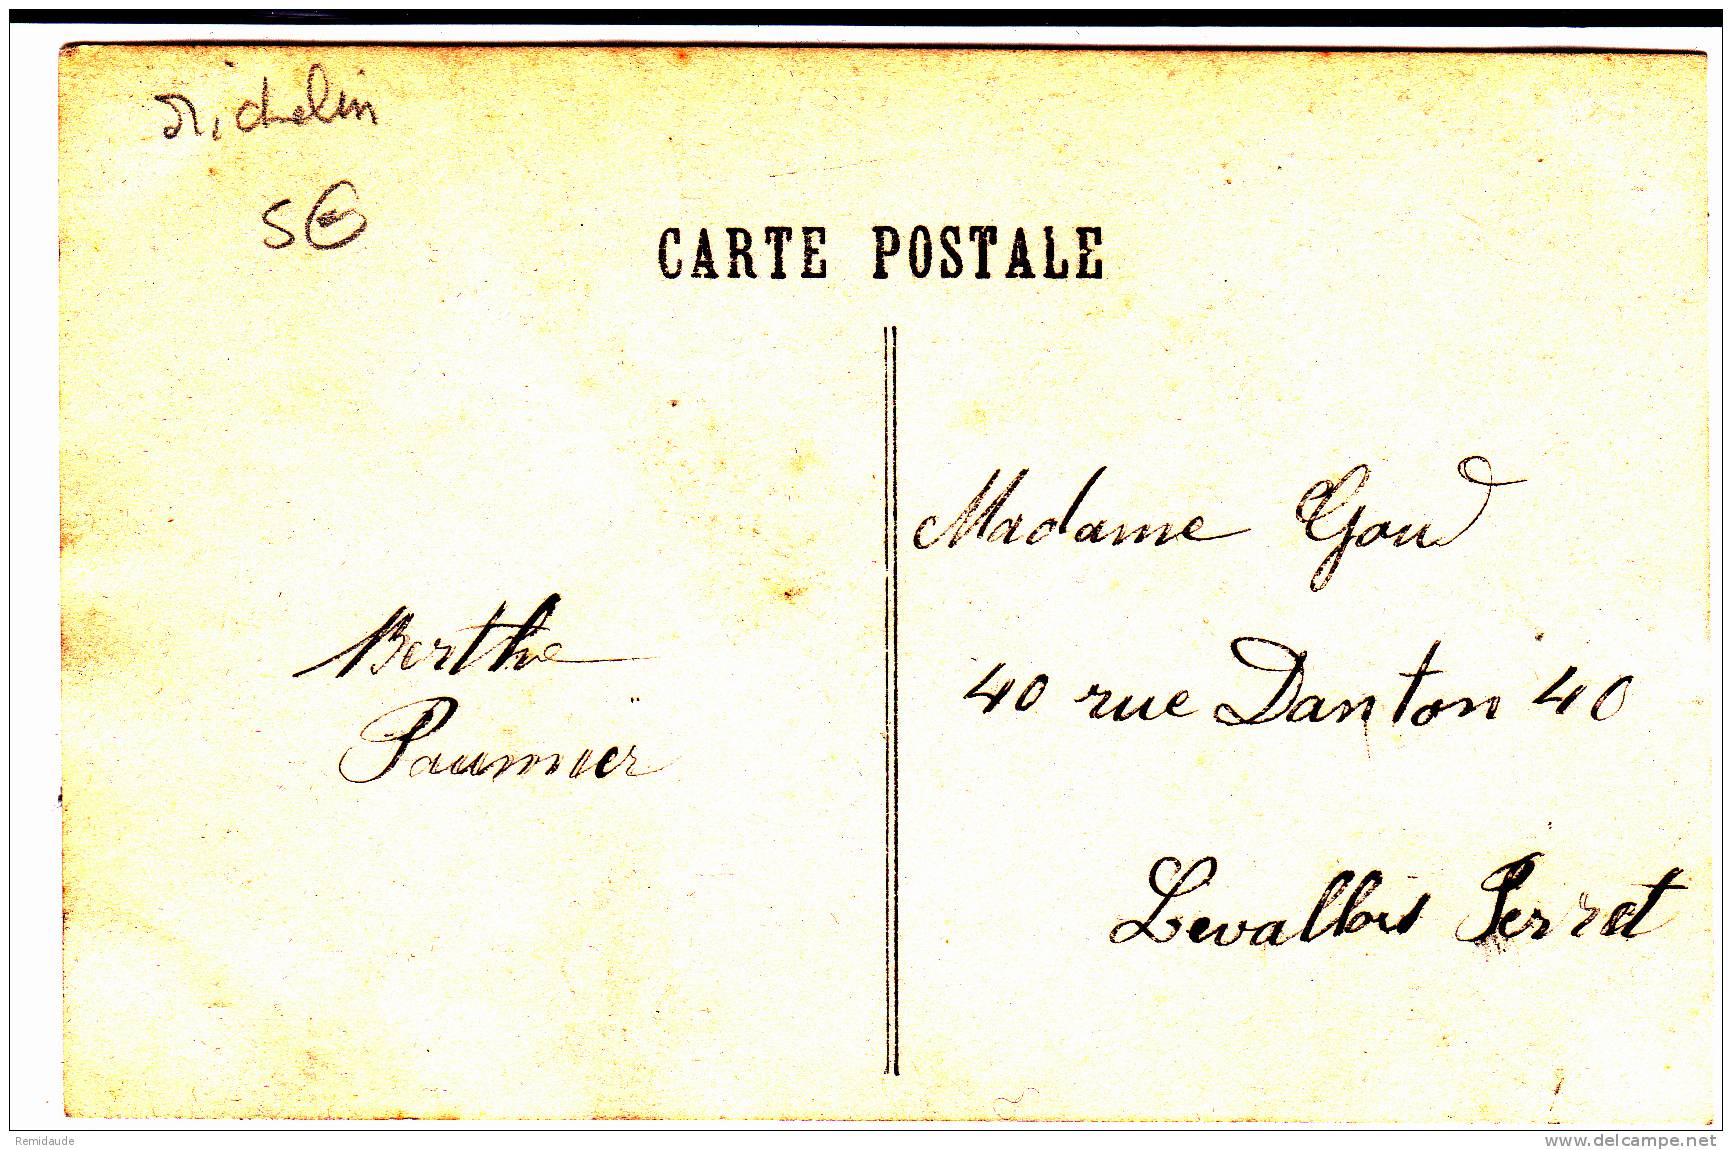 Michelin
5€
CARTE POSTALE
Madame Goud
Berthe
40 rue Danton 40
Paumier
Levallois Perret
Remidaude
www.delcampe.net